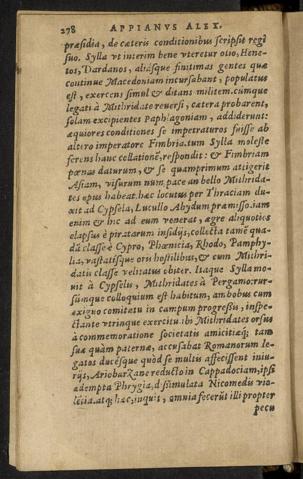 278 APPIANVS ALEX.
præsidia, de cæteris conditionibus scripsit regi
suo. Sylla vt interim bene vteretur otio, Hene-
tos, Dardanos, aliasque finitimas gentes quæ
continue Macedoniam incursabant, populatus
est, exercens simul & ditans militem. cumque
legati à Mithridate reuersi, cætera probarent,
solam excipientes Paphlagoniam, addiderunt:
æquiores conditiones se impetraturos fuisse ab
altero imperatore Fimbria. tum Sylla moleste
ferens hanc collationē, respondit: & Fimbriam
pœnas daturum, & se quamprimum attigerit
Asiam, visurum num pace an bello Mithrida-
tes opus habeat. hæc locutus per Thraciam du-
xit ad Cypsela, Lucullo Abydum præmisso. iam
enim & hic ad eum venerat, ægre aliquoties
elapsus è piratarum insidijs, collecta tamē qua-
dā classe è Cypro, Phœnicia, Rhodo, Pamphy-
lia, vastatisque oris hostilibus, & cum Mithri-
datis classe velitatus obiter. Itaque Sylla mo-
uit à Cypselis, Mithridates à Pergamo: rur-
sumque colloquium est habitum, ambobus cum
exiguo comitatu in campum progressis, inspe-
ctante vtrinque exercitu. ibi Mithridates orsus
à commemoratione societatis amicitiæq; tam
suæ quàm paternæ, accusabat Romanorum le-
gatos ducesque quòd se multis affecissent iniu-
rijs, Ariobarzane reducto in Cappadociam, ipsi
adempta Phrygia, dissimulata Nicomedis vio-
lētia. atq; hæc, inquit, omnia fecerūt illi propter
pecu